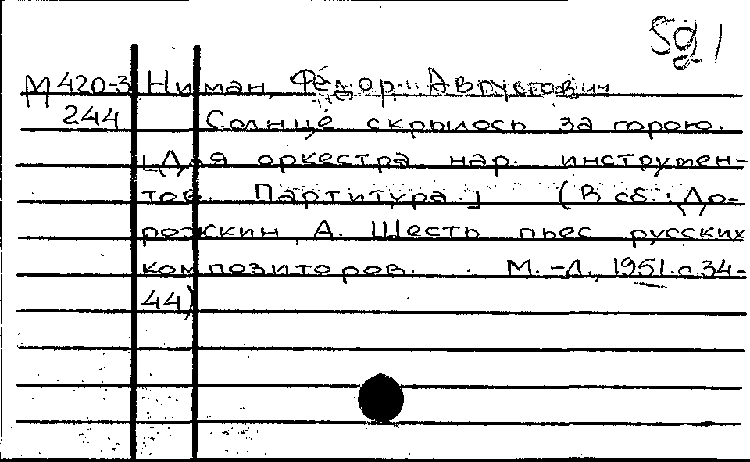 М420-3 Ниман, Фёдор Августович
244 Солнце скрылось за горою.
[Для оркестра нар. инструмен-
тов. Партитура.] (В сб.: До-
рожкин, А. Шесть пьес русских
композиторов. М.-Л., 1951. с. 34-
44)